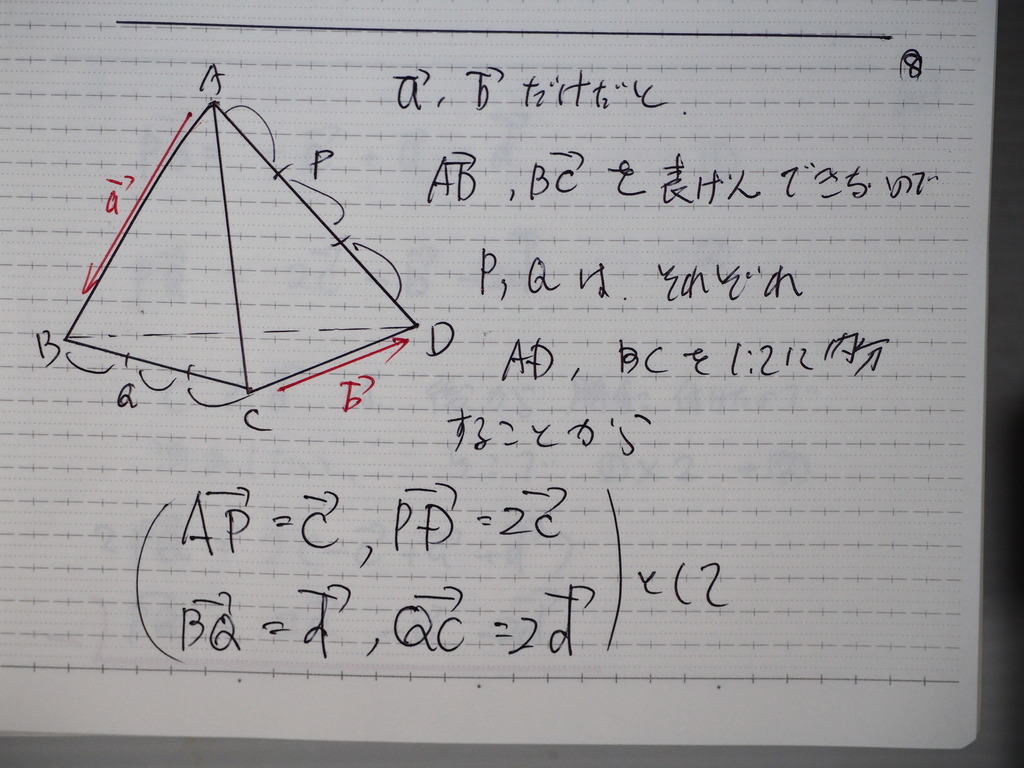 ⑧
A
P
B
D
Q
C
a→
b→
a→, b→ だけだと
AB→, BC→ を 表げんできないので
P, Q は それぞれ
AD, BC を 1:2に内分
することから
(AP→ = c→, PD→ = 2c→
BQ→ = d→, QC→ = 2d→) として